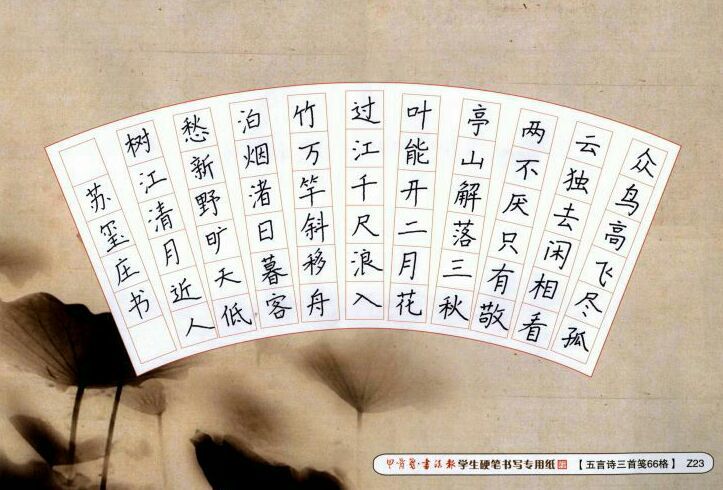 众鸟高飞尽孤
云独去闲相看
两不厌只有敬
亭山解落三秋
叶能开二月花
过江千尺浪入
竹万竿斜移舟
泊烟渚日暮客
愁新野旷天低
树江清月近人
苏玺庄书
书法报 学生硬笔书写专用纸 【五言诗三首笺66格】 Z23